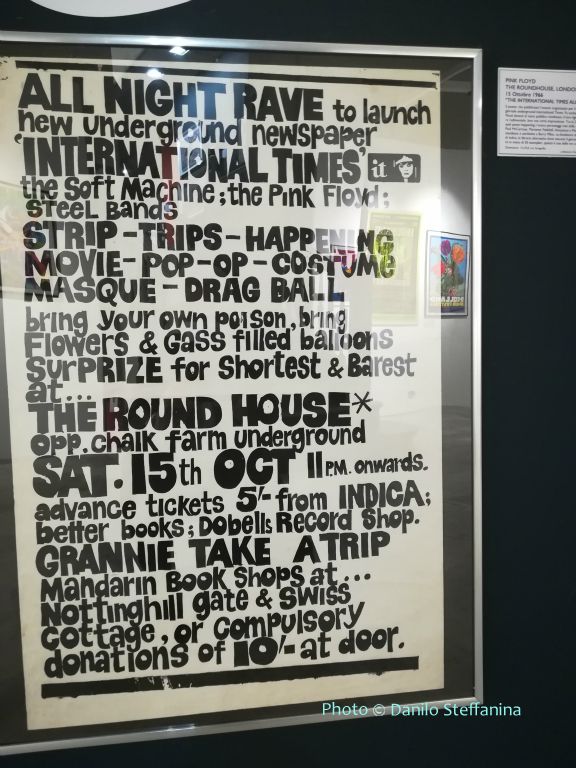 ALL NIGHT RAVE to launch
new underground newspaper
'INTERNATIONAL TIMES' it
the Soft Machine; the Pink Floyd;
Steel Bands
STRIP-TRIPS-HAPPENING
MOVIE-POP-OP-COSTUME
MASQUE-DRAG BALL
bring your own poison, bring
Flowers & Gass filled balloons
SurPRIZE for Shortest & Barest
at...
THE ROUND HOUSE*
opp. chalk farm underground
SAT. 15th OCT 11 P.M. onwards.
advance tickets 5/- from INDICA;
better books; Dobells Record Shop.
GRANNIE TAKE A TRIP
Mandarin Book Shops at...
Nottinghill gate & Swiss
cottage, or compulsory
donations of 10/- at door.
PINK FLOYD
THE ROUNDHOUSE, LONDON
15 Ottobre 1966
Photo © Danilo Steffanina